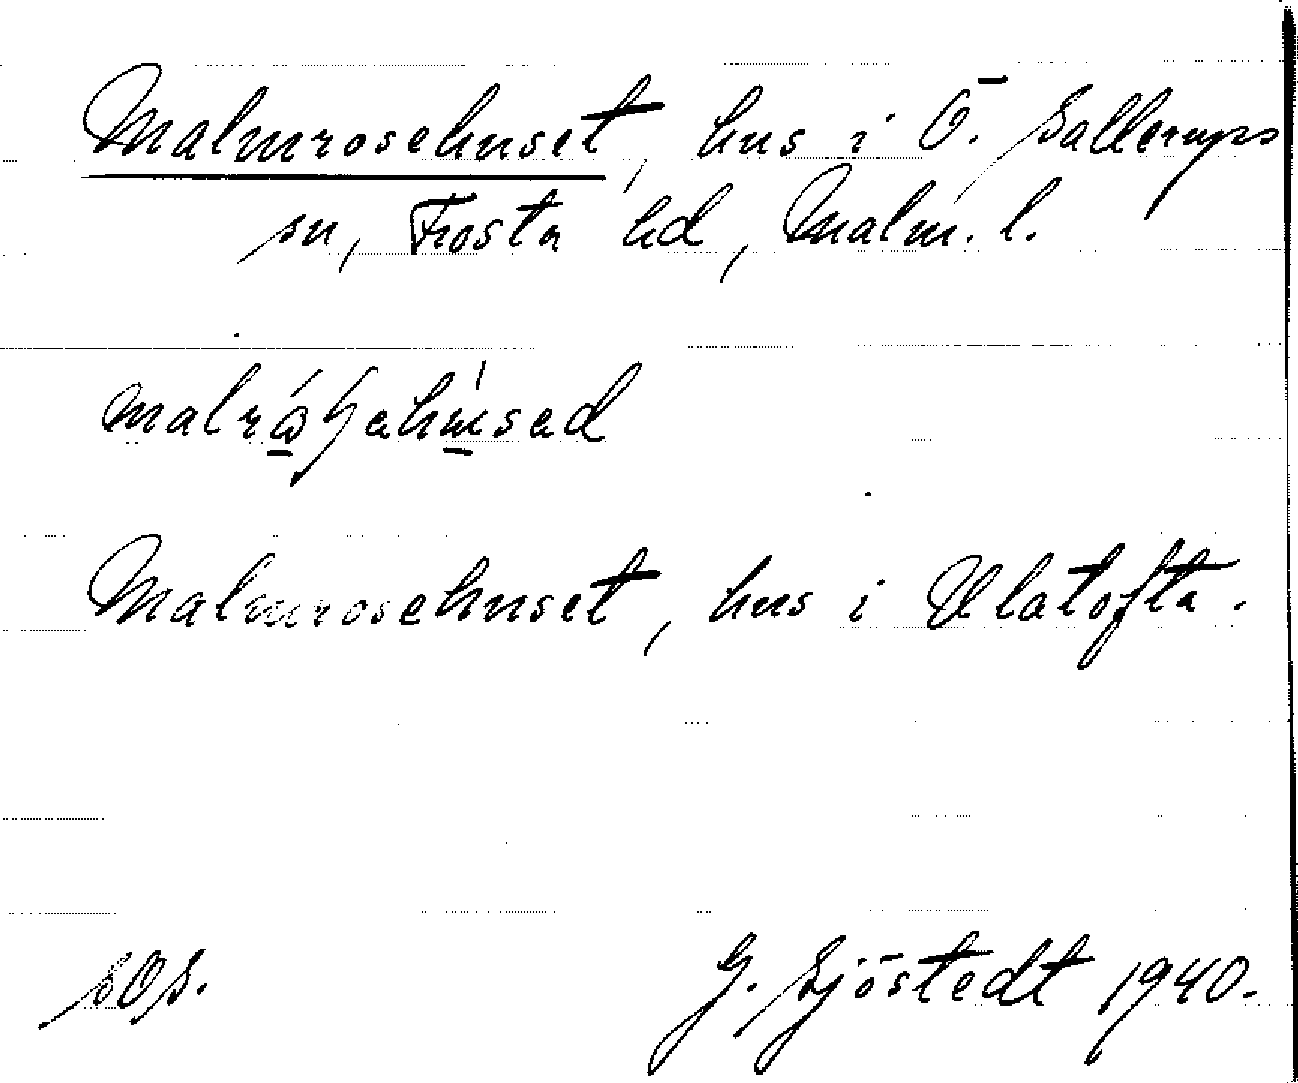 Malmrosehuset, hus i Ö. Sallerups
sn, Frosta hd, Malm. l.
Malmrosehuset, hus i Ulatofta.
SOS. G. Sjöstedt 1940.